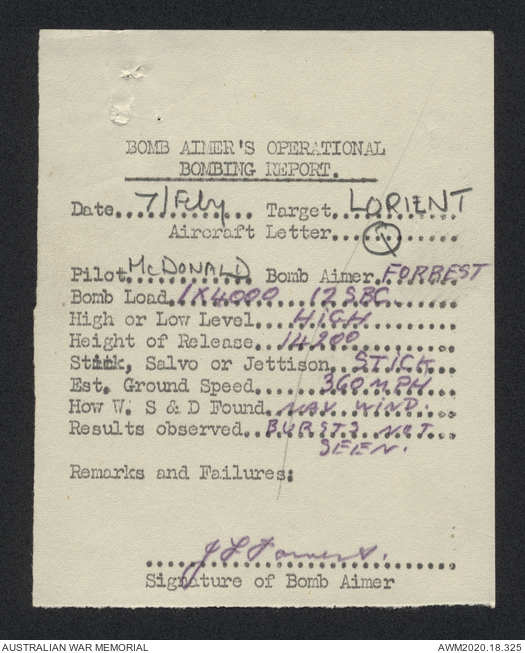 BOMB AIMER'S OPERATIONAL
BOMBING REPORT.
Date 7/Feby Target LORIENT
Aircraft Letter
Pilot McDONALD Bomb Aimer FORREST
Bomb Load 1X4000 12 SBC
High or Low Level HIGH
Height of Release 14200
Stick, Salvo or Jettison STICK
Est. Ground Speed 360 MPH
How W. S & D Found NAV WIND.
Results observed BURSTS NOT
SEEN.
Remarks and Failures:
J L Forrest.
Signature of Bomb Aimer
AUSTRALIAN WAR MEMORIAL AWM2020.18.325